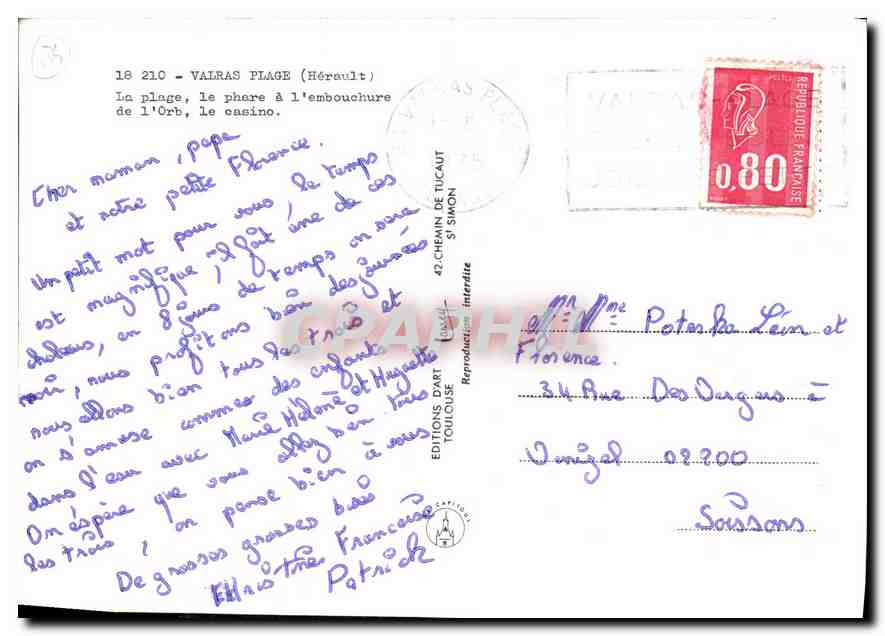 18 210 - VALRAS PLAGE (Hérault)
La plage, le phare à l'embouchure
de l'Orb, le casino.
Cher maman, papa
et notre petite Florence.
Un petit mot pour vous, le temps
est magnifique, il fait une de ces
chaleurs, en 8 jours de temps on sera
noir, nous profitons bien des journées
nous allons bien tous les trois et
on s'amuse commes des enfants
dans l'eau avec Marie Hélène et Huguette
On espère que vous allez bien tous
les trois, on pense bien à vous
De grosses grosses bises
Christine Francoise
Patrick
EDITIONS D'ART Larrey
TOULOUSE
42, CHEMIN DE TUCAUT
St SIMON
Reproduction interdite
CAPITOUL
VALRAS PLAGE
REPUBLIQUE FRANÇAISE
POSTES
0,80
Mr Mme Poterka Léon et
Florence.
34 Rue Des Vergers à
02200
Soissons
CPAPHIL